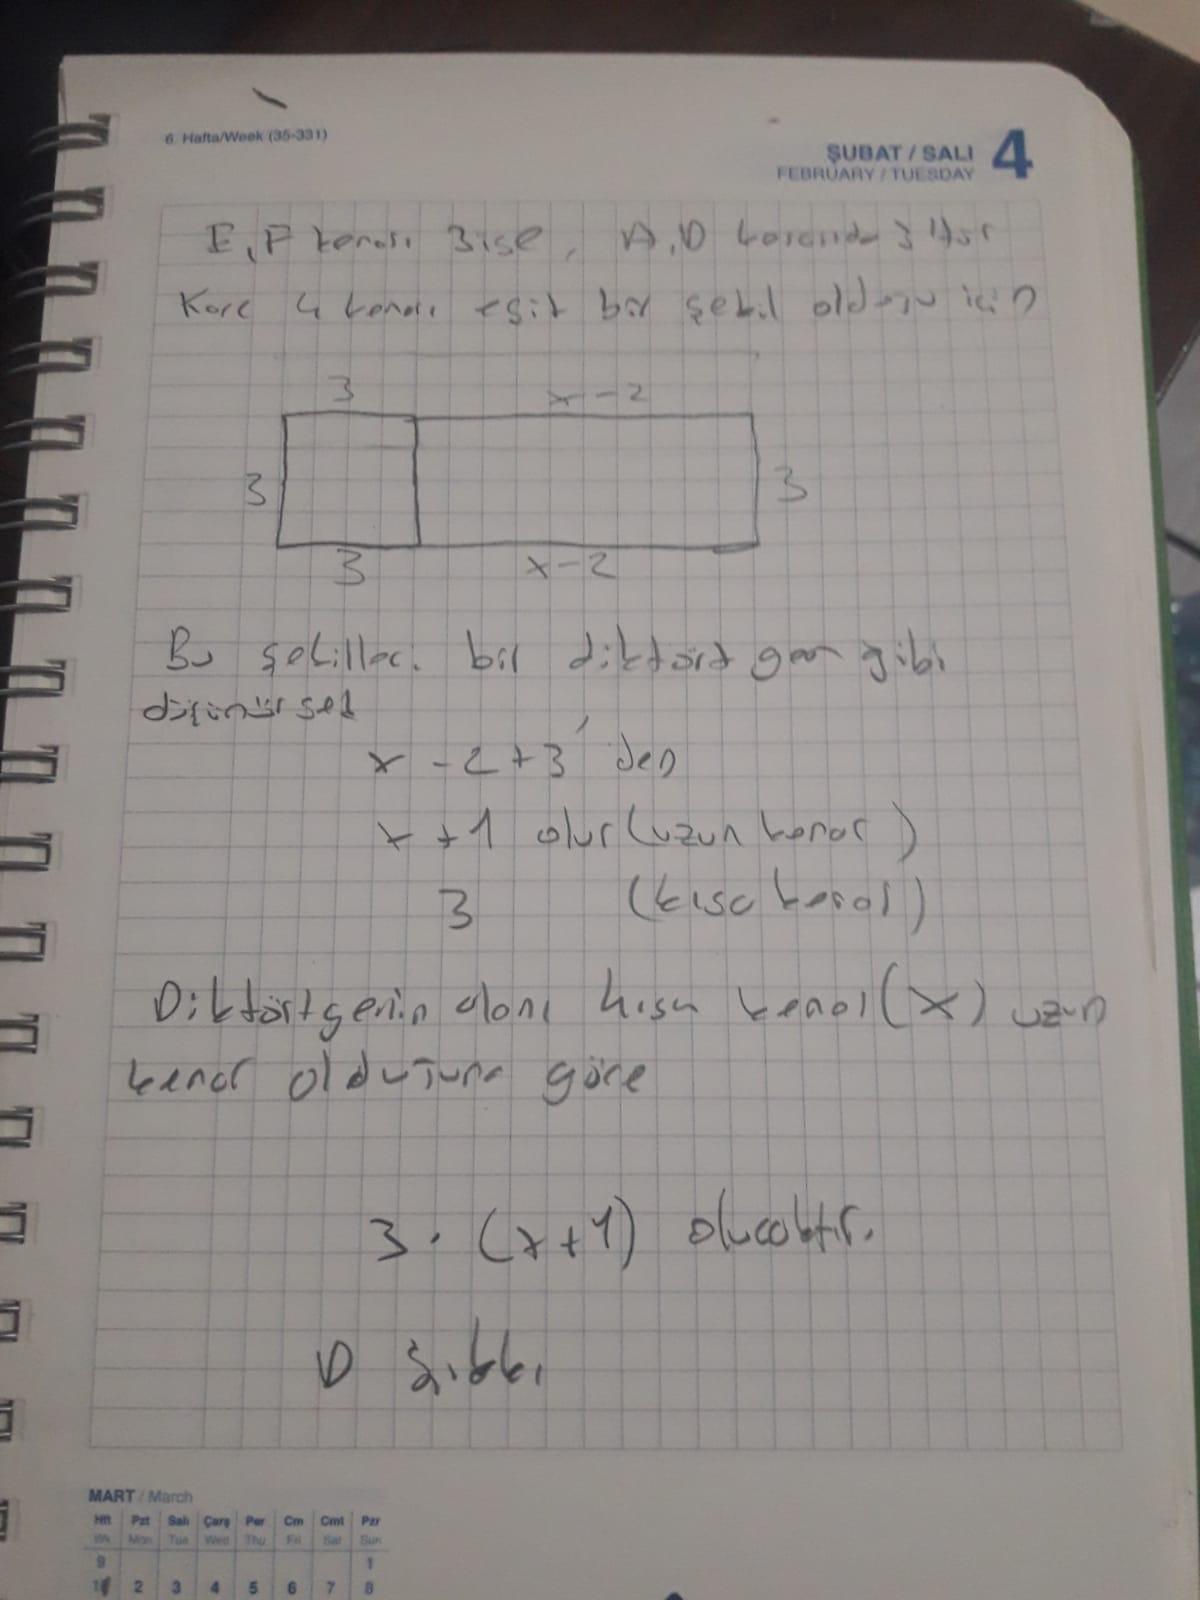 6. Hafta/Week (35-331)
ŞUBAT / SALI 4
FEBRUARY / TUESDAY
E,F kenarı 3 ise, A,D kenarıda 3'tür
Kare 4 kenarı eşit bir şekil olduğu için
3 x-2
3 3
3 x-2
Bu şekilleri bir diktörtgen gibi
düşünürsek
x -2+3' den
x +1 olur (uzun kenar)
3 (kısa kenar)
Diktörtgenin alanı kısa kenar (x) uzun
kenar olduğuna göre
3 . (x+1) olucaktır.
D Şıkkı
MART / March
Hft Pzt Salı Çarş Per Cm Cmt Pzr
Wk Mon Tue Wed Thu Fri Sat Sun
9 1
2 3 4 5 6 7 8